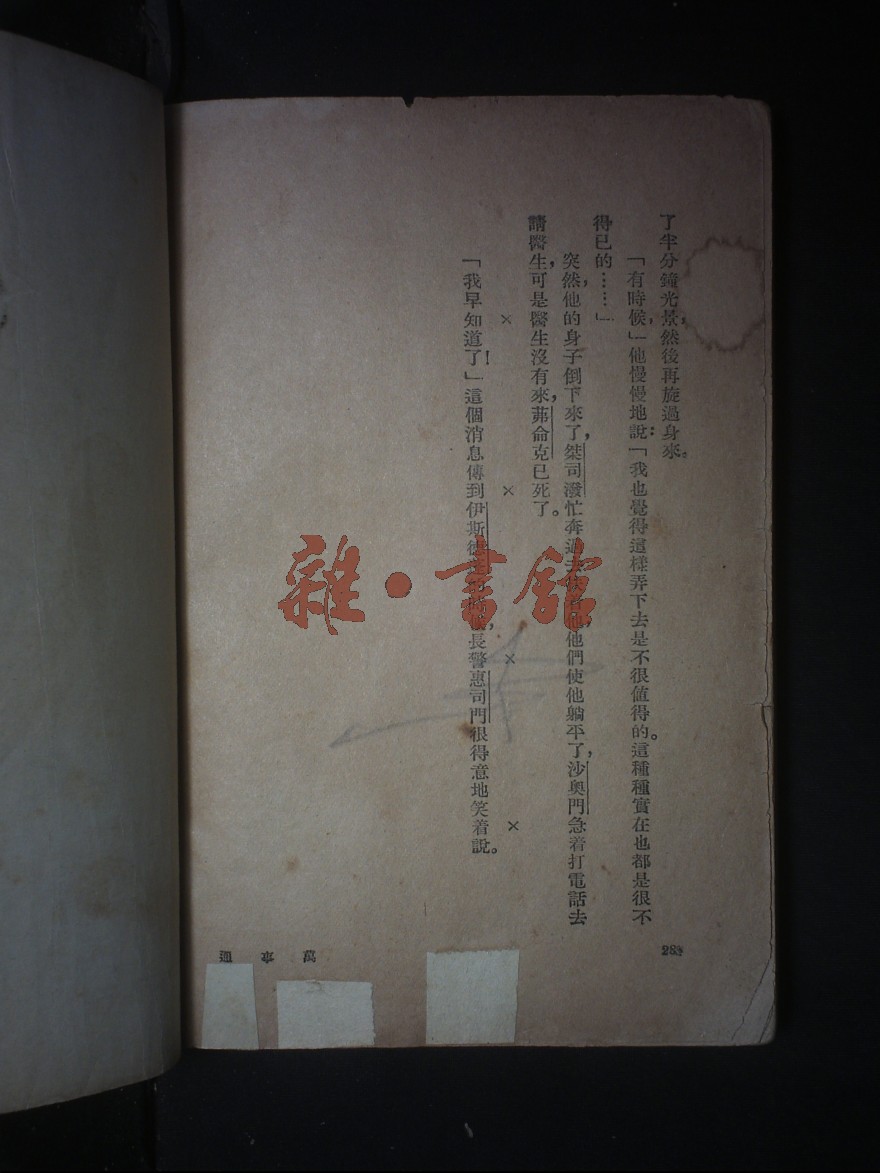 了半分鐘光景,然後再旋過身來。
「有時候,」他慢慢地說:「我也覺得這樣弄下去是不很值得的。這種種實在也都是很不
得已的……」
突然,他的身子倒下來了,桀司潑忙奔過去他,他們使他躺平了,沙奧門急着打電話去
請醫生,可是醫生沒有來,茀侖克已死了。
× × × ×
「我早知道了!」這個消息傳到伊斯,長警惠司門很得意地笑着說。
雜·書館